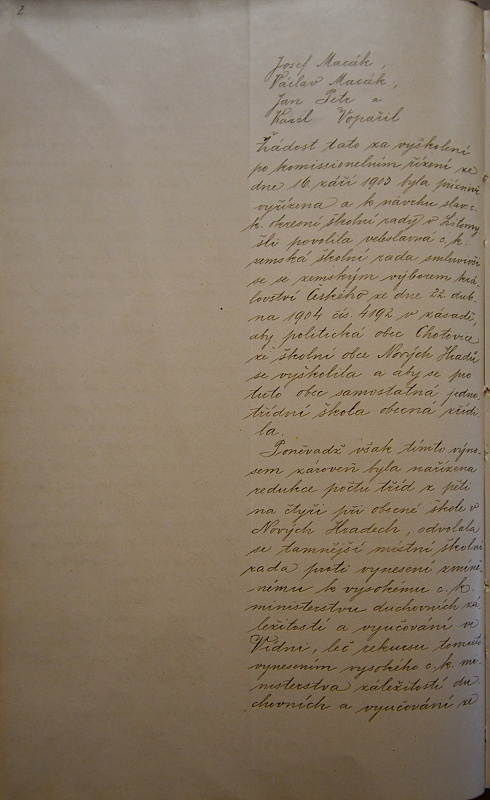 2.
Josef Macák,
Václav Macák,
Jan Petr a
Karel Vopařil
Žádost tato za vyškolení
po komissionelním řízení ze
dne 16. září 1903 byla příznivě
vyřízena a k návrhu slav. c.
k. okresní školní rady v Litomy-
šli povolila veleslavná c. k.
zemská školní rada smluvivši
se se zemským výborem krá-
lovství Českého ze dne 22. dub-
na 1904 čís. 4192 v zásadě,
aby politická obec Chotovice
ze školní obce Nových Hradů
se vyškolila a aby se pro
tuto obec samostatná jedno-
třídní škola obecná zřídi-
la.
Poněvadž však tímto výno-
sem zároveň byla nařízena
redukce počtu tříd z pěti
na čtyři při obecné škole v
Nových Hradech, odvolala
se tamnější místní školní
rada proti vynesení zmíně-
nému k vysokému c. k.
ministerstvu duchovních zá-
ležitostí a vyučování ve
Vídni, leč rekursu tomuto
vynesením vysokého c. k. mi-
nisterstva záležitostí du-
chovních a vyučování ze